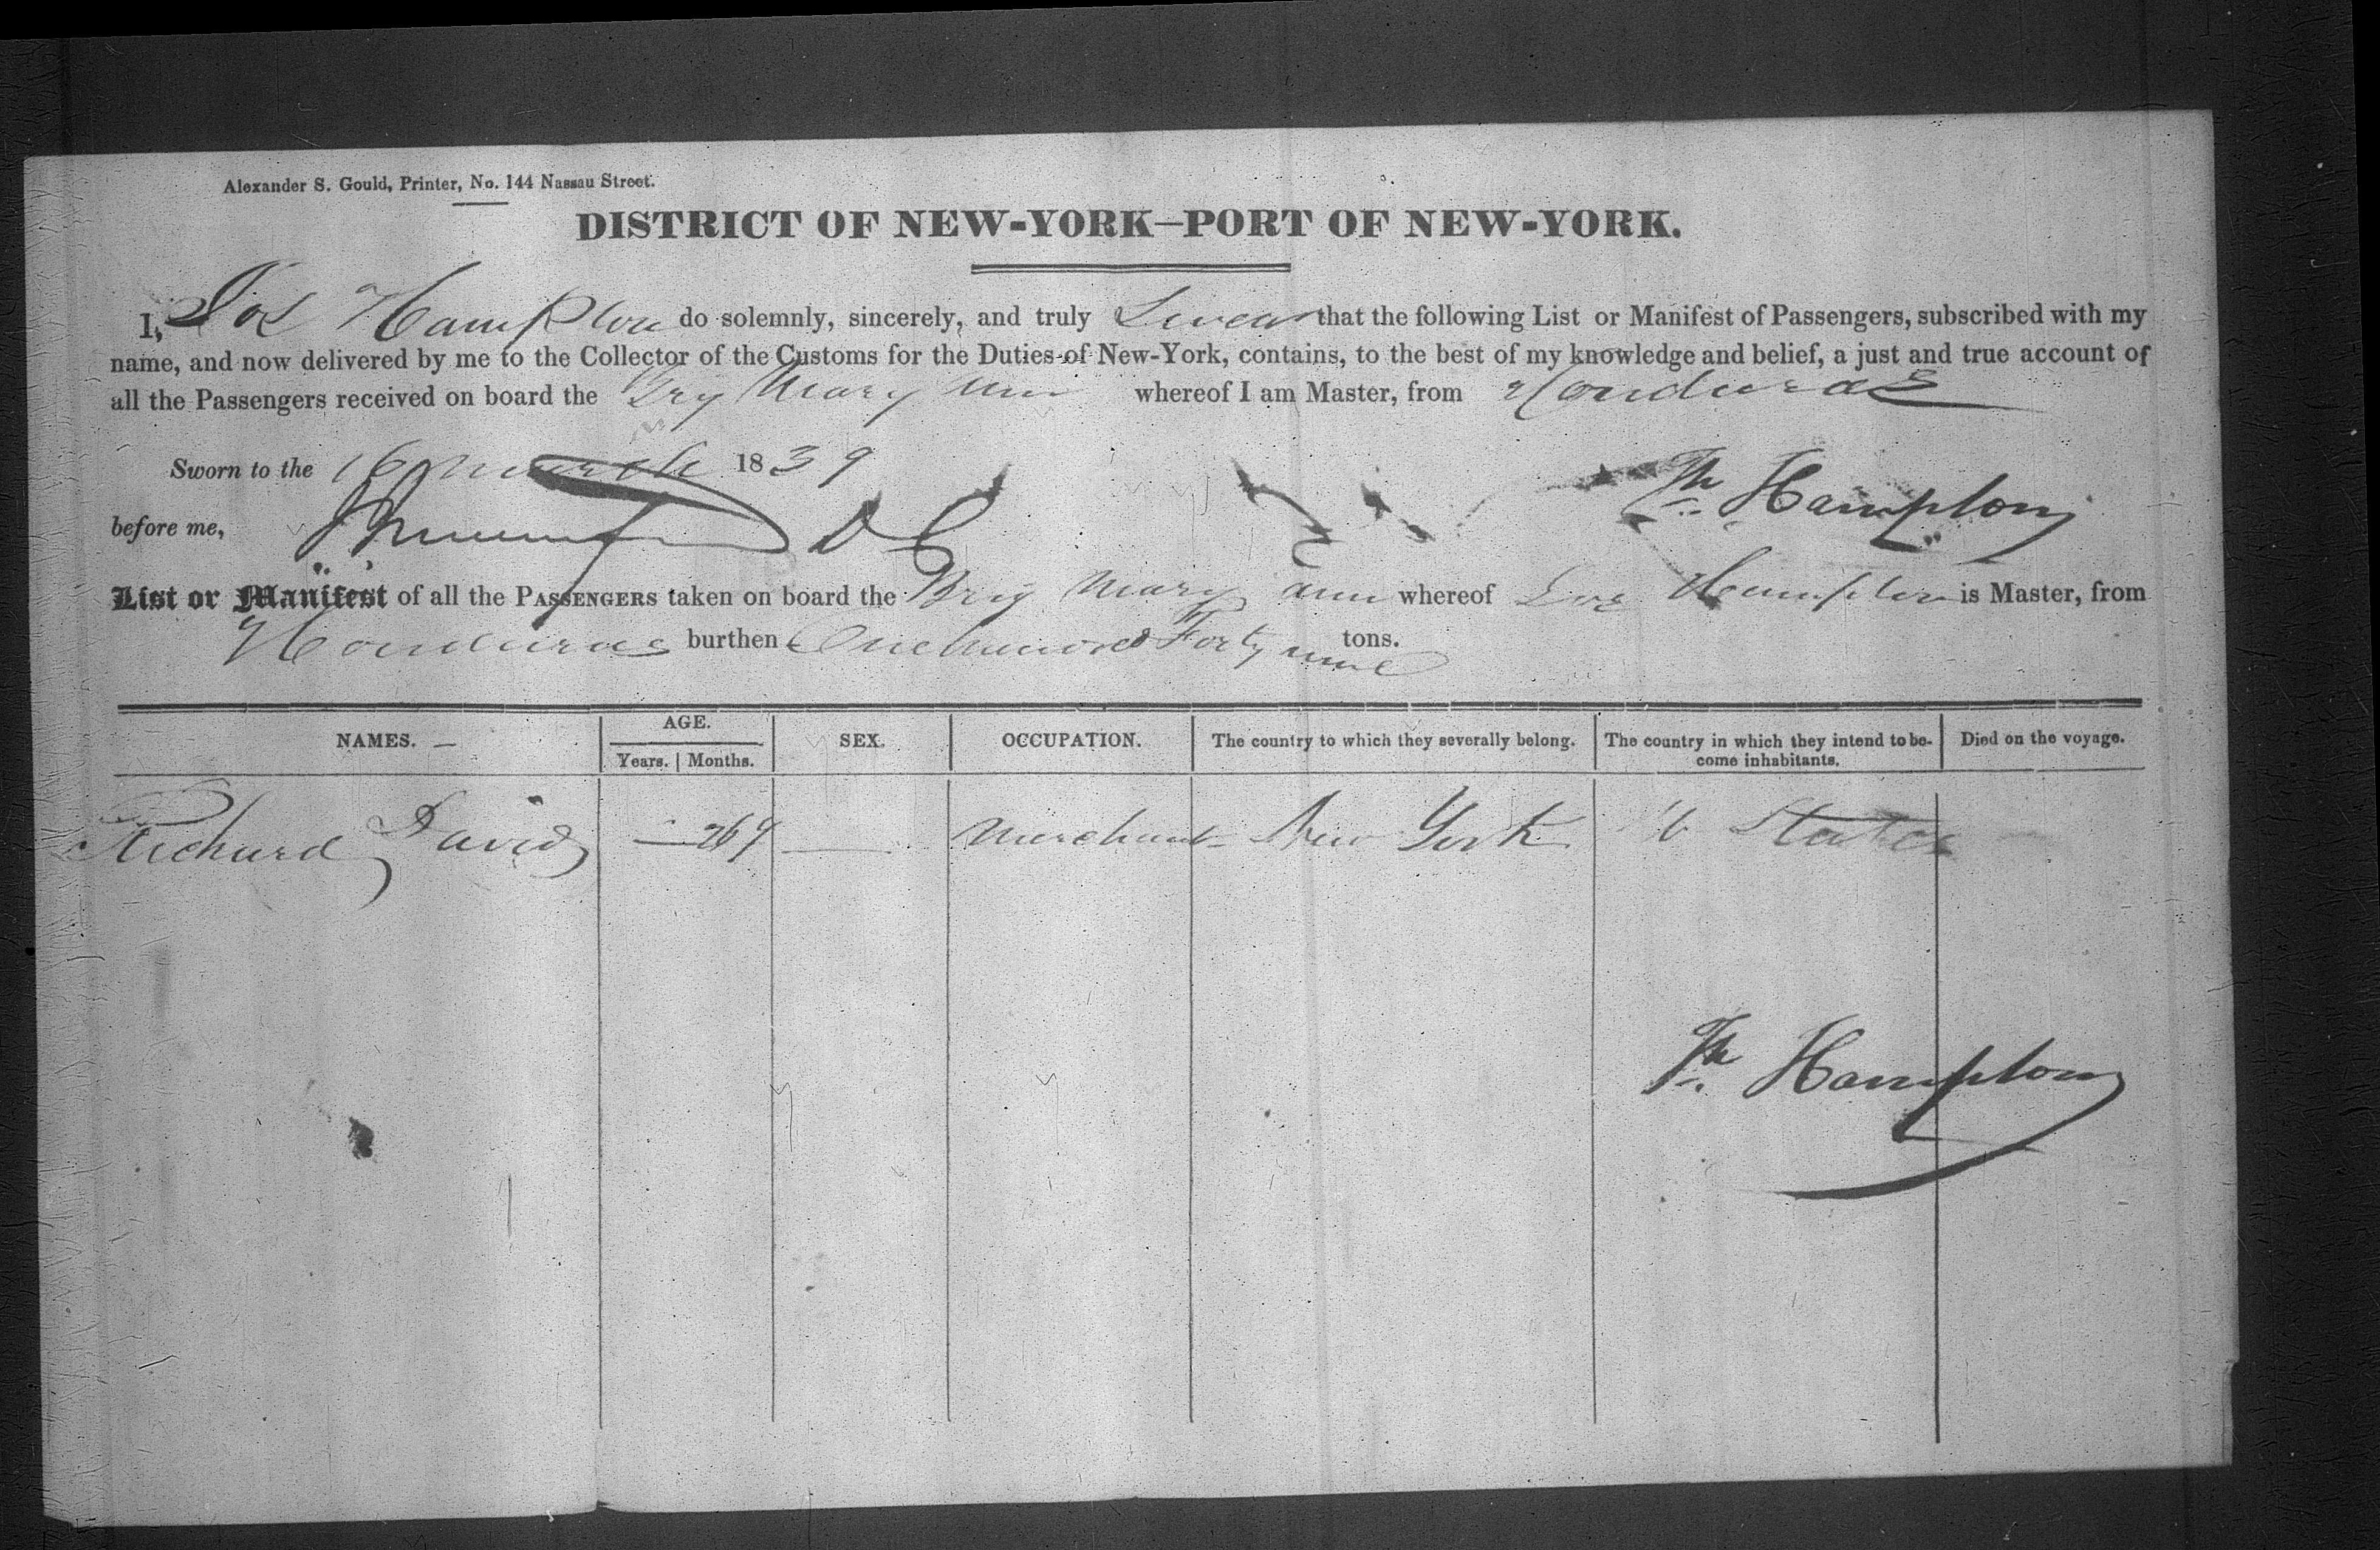 Alexander S. Gould, Printer, No. 144 Nassau Street.
DISTRICT OF NEW-YORK—PORT OF NEW-YORK.
I, Jos Hampton do solemnly, sincerely, and truly Swear that the following List or Manifest of Passengers, subscribed with my
name, and now delivered by me to the Collector of the Customs for the Duties of New-York, contains, to the best of my knowledge and belief, a just and true account of
all the Passengers received on board the Brig Mary Ann whereof I am Master, from Honduras
Sworn to the 16 March 1839
Hampton
before me, D C
List or Manifest of all the PASSENGERS taken on board the Brig Mary Ann whereof Jos Hampton is Master, from
Honduras burthen One hundred Forty nine tons.
NAMES. — AGE. Years. Months. SEX. OCCUPATION. The country to which they severally belong. The country in which they intend to be-come inhabitants. Died on the voyage.
Richard David — — Merchant New York U States
Hampton